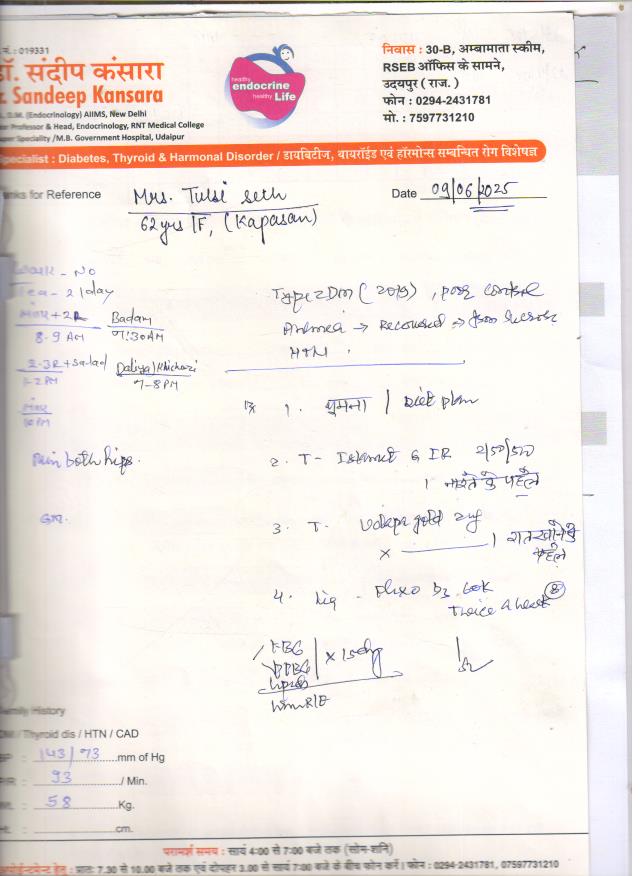 नं. : 019331
डॉ. संदीप कंसारा
Sandeep Kansara
D.M. (Endocrinology) AIIMS, New Delhi
Professor & Head, Endocrinology, RNT Medical College
Super Speciality /M.B. Government Hospital, Udaipur
healthy
endocrine
healthy Life
निवास : 30-B, अम्बामाता स्कीम,
RSEB ऑफिस के सामने,
उदयपुर ( राज. )
फोन : 0294-2431781
मो. : 7597731210
Specialist : Diabetes, Thyroid & Harmonal Disorder / डायबिटीज, थायरॉईड एवं हॉरमोन्स सम्बन्धित रोग विशेषज्ञ
for Reference
Mrs. Tulsi Seth
Date 09/06/2025
62yrs/F, (Kapasan)
- No
Tea - 2/day
+ 2R
Badam
8-9 AM
7:30AM
2-3R + salad
Daliya/Khichdi
1-2 PM
7-8PM
10PM
Pain both hips.
Type 2 DM (2019), poor control
→ →
HTN
Rx 1. घुमना / Diet plan
2. T- 2/50/500
। नाश्ते के पहले
3. T. gold 2mg
x । रात खाने के पहले
4. D3 60K
twice a week 8
FBG
PPBG
x 15 day
Family History
DM / Thyroid dis / HTN / CAD
BP : 143/93 mm of Hg
93 / Min.
Wt. : 58 Kg.
Ht. : cm.
परामर्श समय : सायं 4:00 से 7:00 बजे तक (सोम-शनि)
अपोईन्टमेन्ट हेतु : प्रातः 7.30 से 10.00 बजे तक एवं दोपहर 3.00 से सायं 7:00 बजे के बीच फोन करें। फोन : 0294-2431781, 07597731210